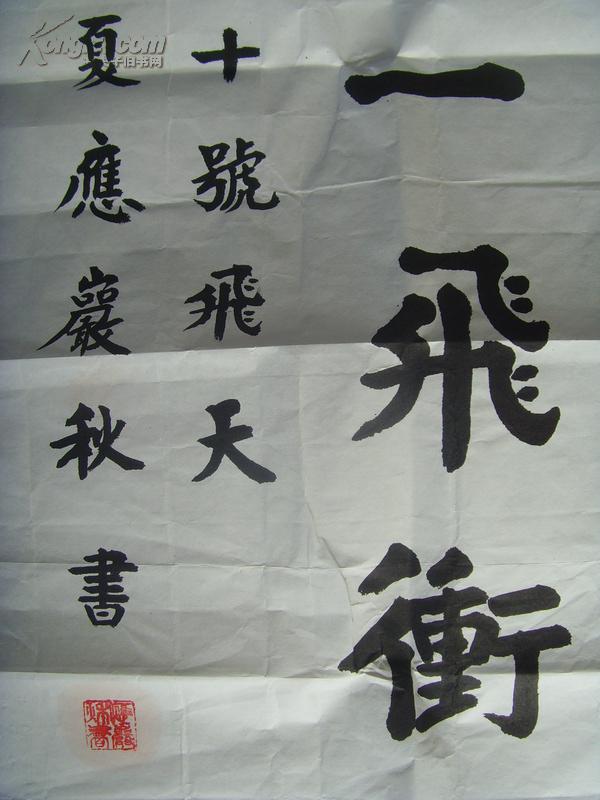 一飛衝
十號飛天
夏應巖秋書
Kongfz.com
孔夫子旧书网